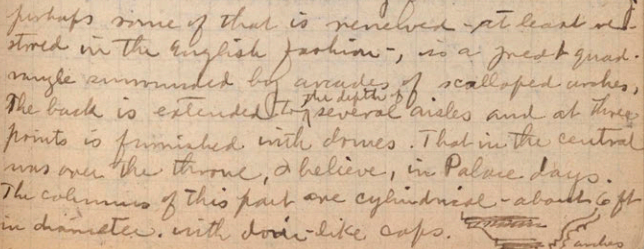 perhaps some of that is renewed - at least re-
stored in the English fashion -, is a great quad-
rangle surrounded by arcades of scalloped arches,
The back is extended to the depth of several aisles and at three
points is furnished with domes. That in the central
was over the throne, I believe, in Palace days.
The columns of this part are cylindrical - about 6 ft
in diameter. with -like caps.
arches